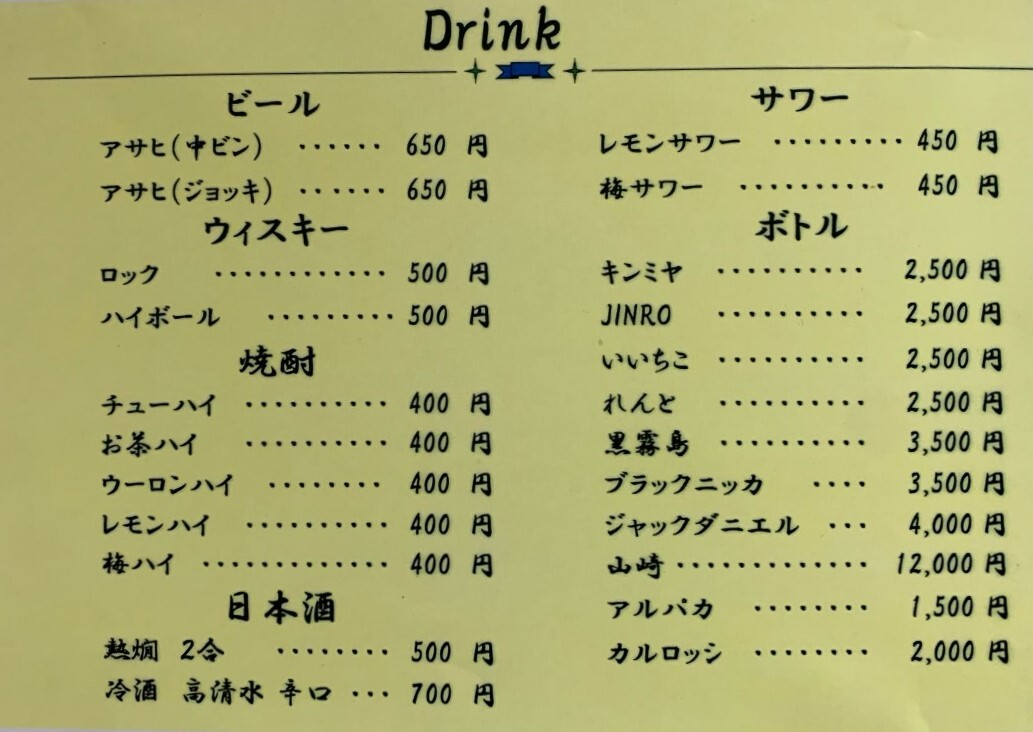 Drink
ビール
アサヒ(中ビン) ······ 650 円
アサヒ(ジョッキ) ······ 650 円
ウィスキー
ロック ············ 500 円
ハイボール ········· 500 円
焼酎
チューハイ ·········· 400 円
お茶ハイ ·········· 400 円
ウーロンハイ ········ 400 円
レモンハイ ·········· 400 円
梅ハイ ············· 400 円
日本酒
熱燗 2合 ········ 500 円
冷酒 高清水 辛口 ··· 700 円
サワー
レモンサワー ········· 450 円
梅サワー ·········· 450 円
ボトル
キンミヤ ·········· 2,500 円
JINRO ·········· 2,500 円
いいちこ ·········· 2,500 円
れんと ·········· 2,500 円
黒霧島 ·········· 3,500 円
ブラックニッカ ···· 3,500 円
ジャックダニエル ··· 4,000 円
山崎 ············· 12,000 円
アルパカ ········ 1,500 円
カルロッシ ········ 2,000 円